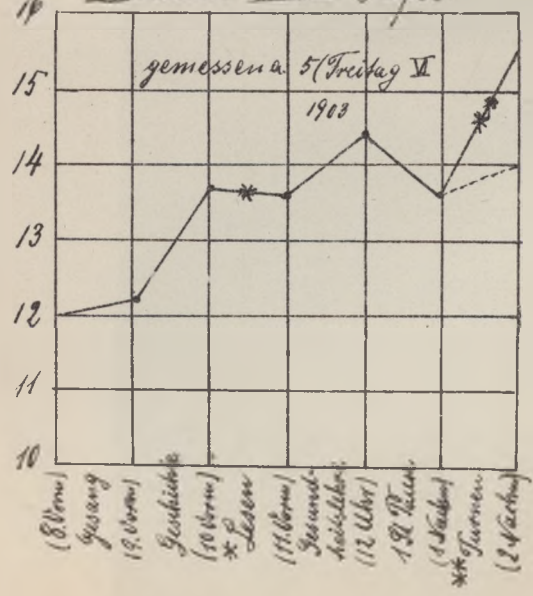 16
gemessen a. 5 (Freitag VI
1903
15
14
13
12
11
10
(8 Vorm)
Gesang
(9. Vorm)
Geschichte
(10 Vorm)
* Lesen
(11. Vorm)
Gesund-
heitslehre
(12 Uhr)
1 St
(1 Nachm)
** Turnen
(2 Nachm)